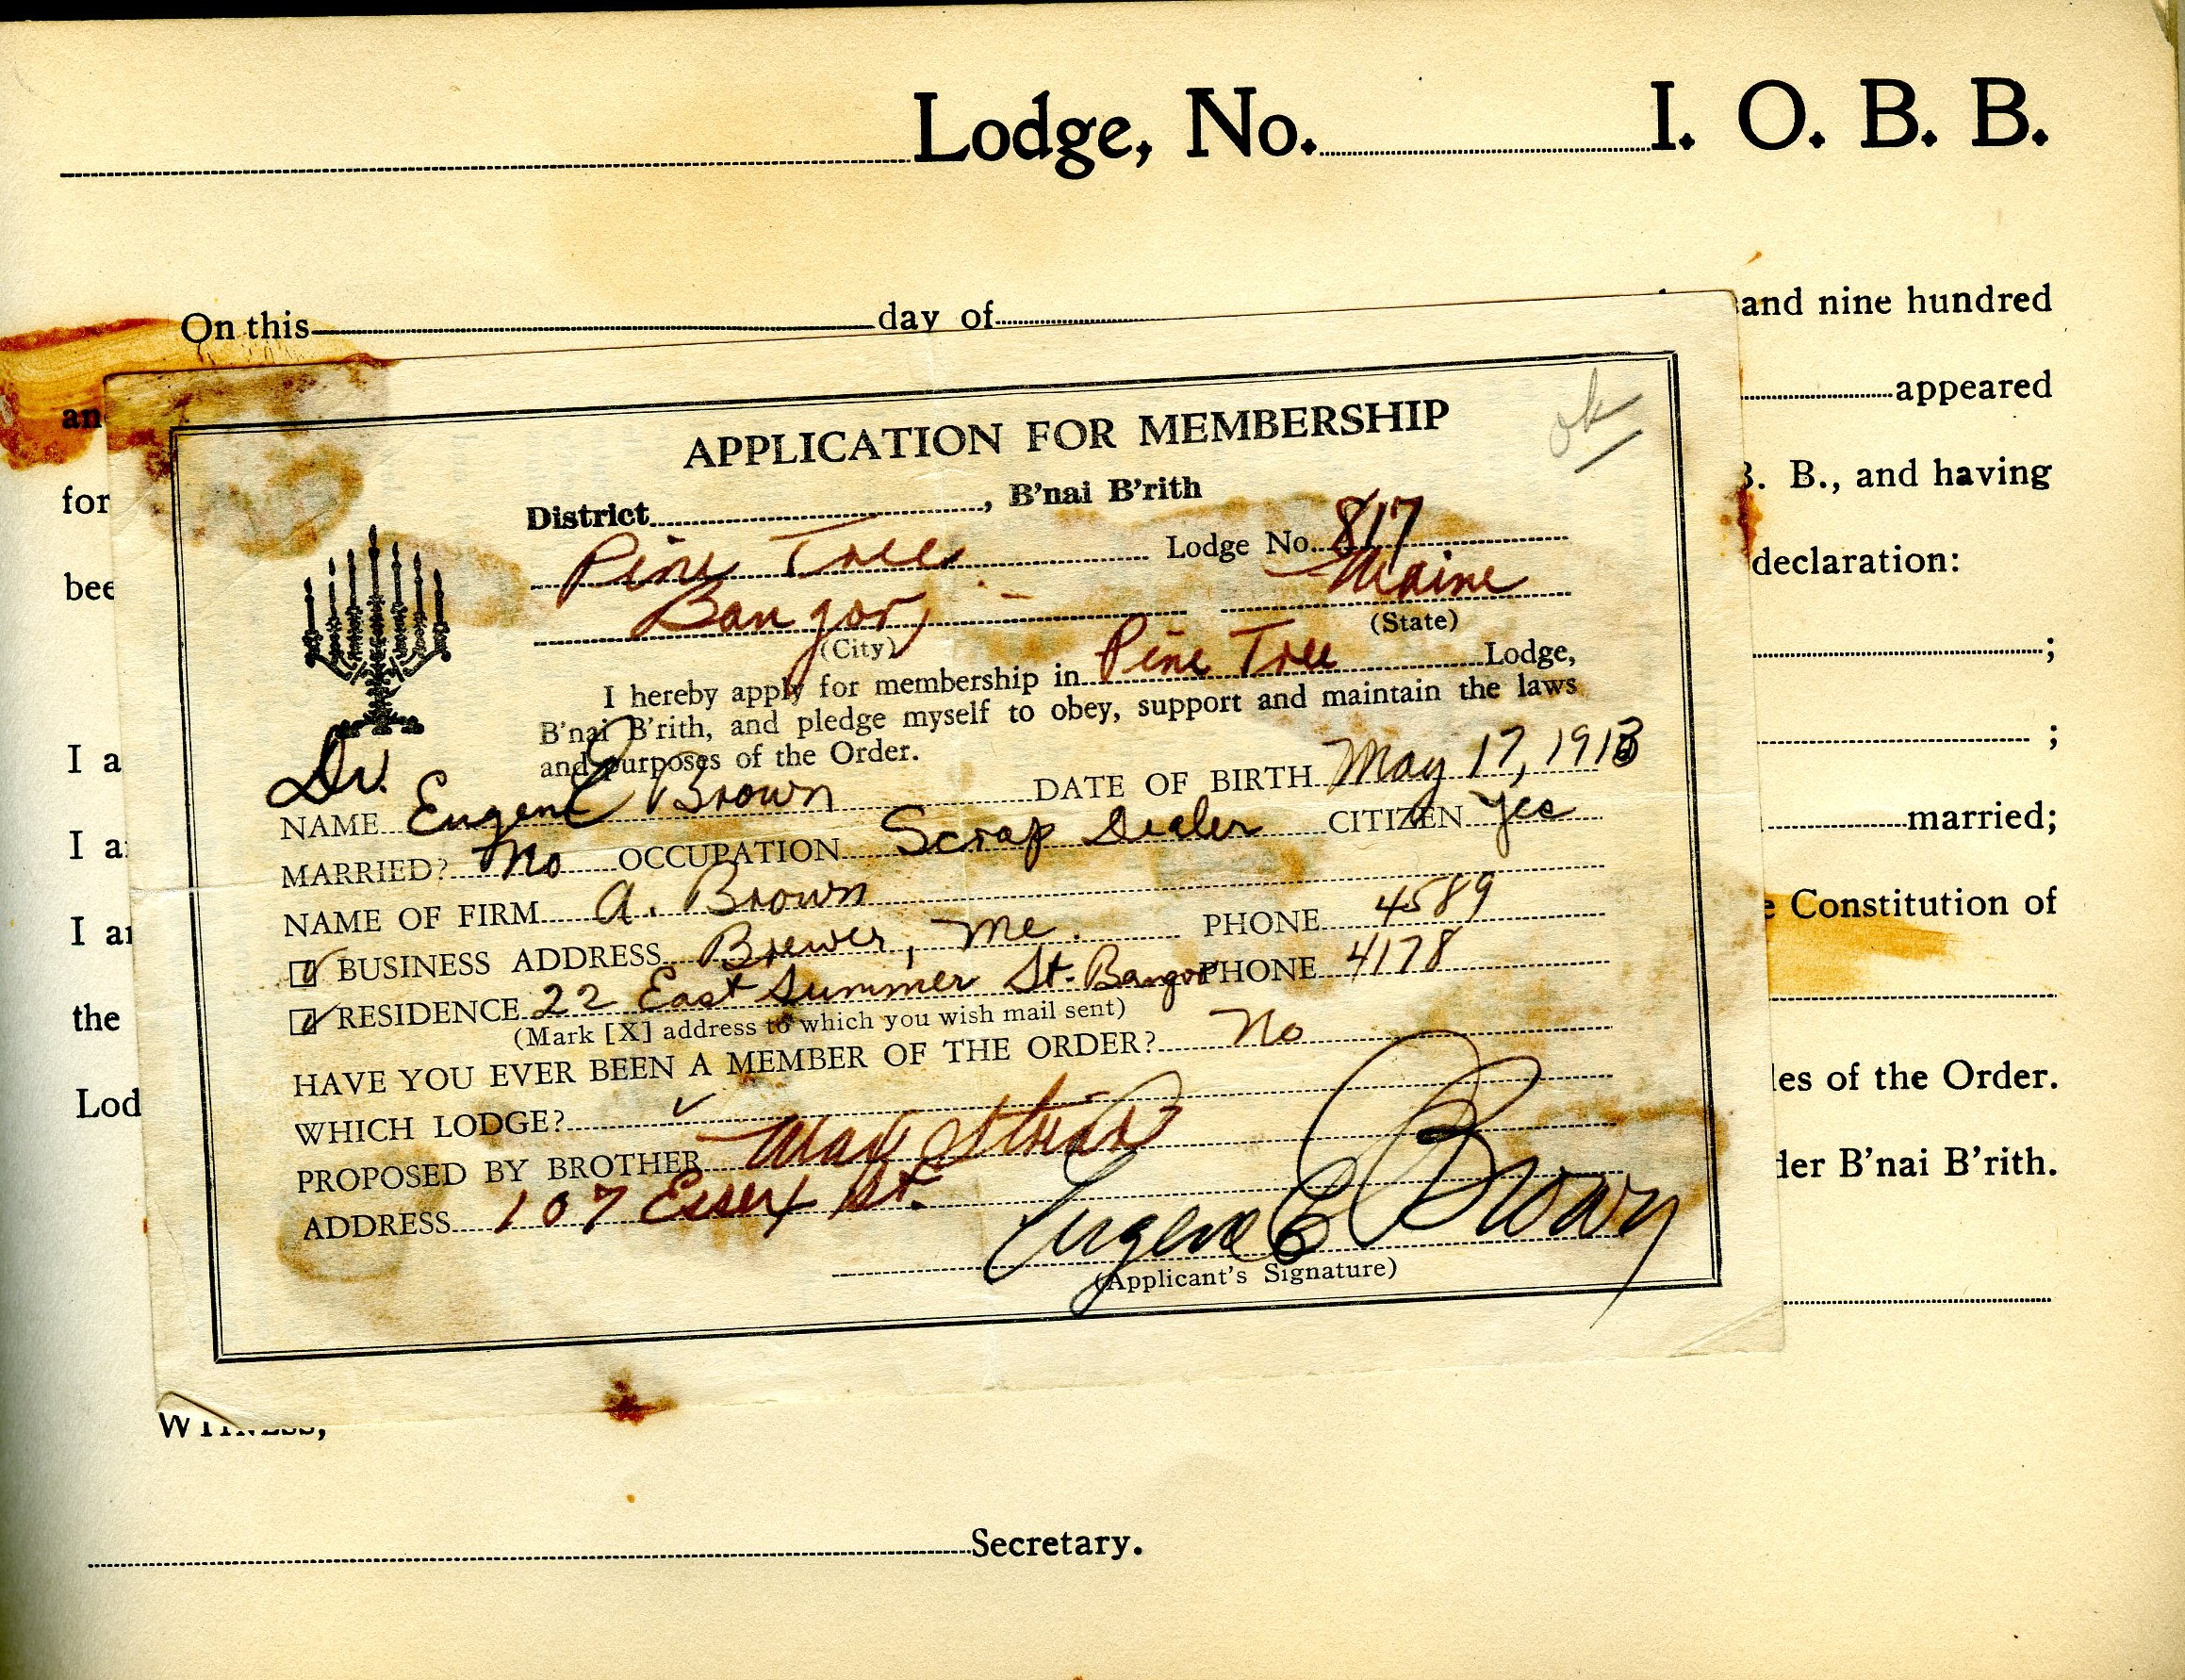 Lodge, No. I. O. B. B.
On this day of and nine hundred
an appeared
for B. B., and having
bee declaration:
;
I a ;
I a married;
I a e Constitution of
the
Lod les of the Order.
der B'nai B'rith.
WITNESS,
Secretary.
ok
APPLICATION FOR MEMBERSHIP
District , B'nai B'rith
Pine Tree Lodge No. 817
Bangor Maine
(City) (State)
I hereby apply for membership in Pine Tree Lodge,
B'nai B'rith, and pledge myself to obey, support and maintain the laws
and purposes of the Order.
Dr.
NAME Eugene E Brown DATE OF BIRTH May 17, 1913
MARRIED? No OCCUPATION Scrap Dealer CITIZEN Yes
NAME OF FIRM A. Brown
BUSINESS ADDRESS Brewer, Me. PHONE 4589
RESIDENCE 22 East Summer St. Bangor PHONE 4178
(Mark [X] address to which you wish mail sent)
HAVE YOU EVER BEEN A MEMBER OF THE ORDER? No
WHICH LODGE?
PROPOSED BY BROTHER Max
ADDRESS 107 Essex St.
Eugene E Brown
(Applicant's Signature)